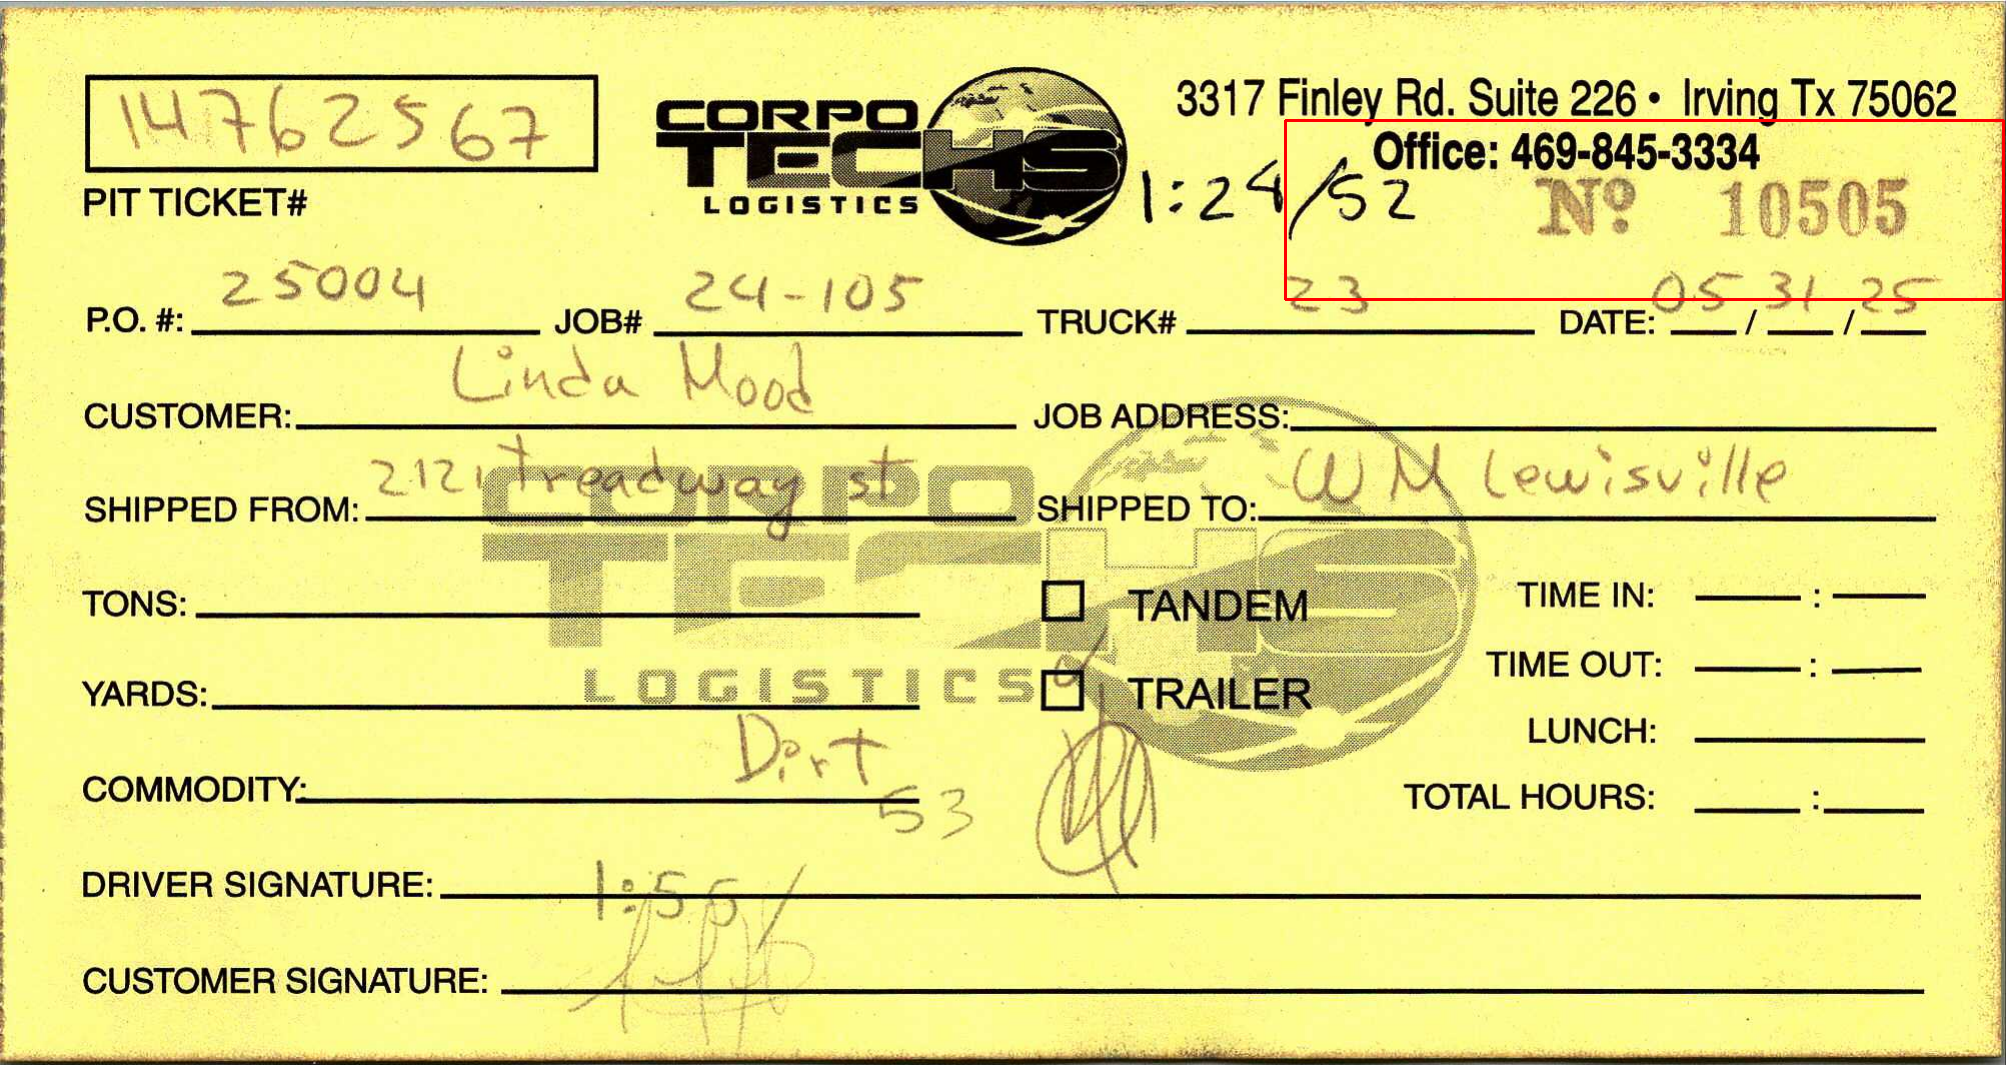 14762567
PIT TICKET#
CORPO
TECHS
LOGISTICS
3317 Finley Rd. Suite 226 • Irving Tx 75062
Office: 469-845-3334
1:24/52
Nº 10505
P.O. #: 25004 JOB# 24-105 TRUCK# 23 DATE: 05/31/25
CUSTOMER: Linda Mood JOB ADDRESS:
SHIPPED FROM: 2121 treadway st SHIPPED TO: WM Lewisville
CORPO
TECHS
LOGISTICS
TONS: TANDEM TIME IN: :
YARDS: TRAILER TIME OUT: :
LUNCH:
COMMODITY: Dirt TOTAL HOURS: :
53
DRIVER SIGNATURE:
CUSTOMER SIGNATURE: